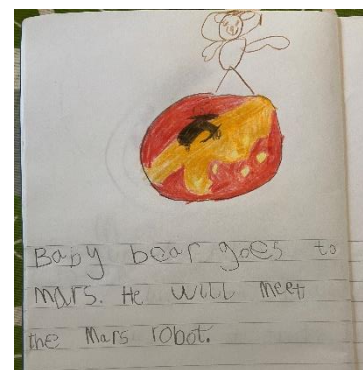 Baby bear goes to
mars. He will meet
the Mars robot.